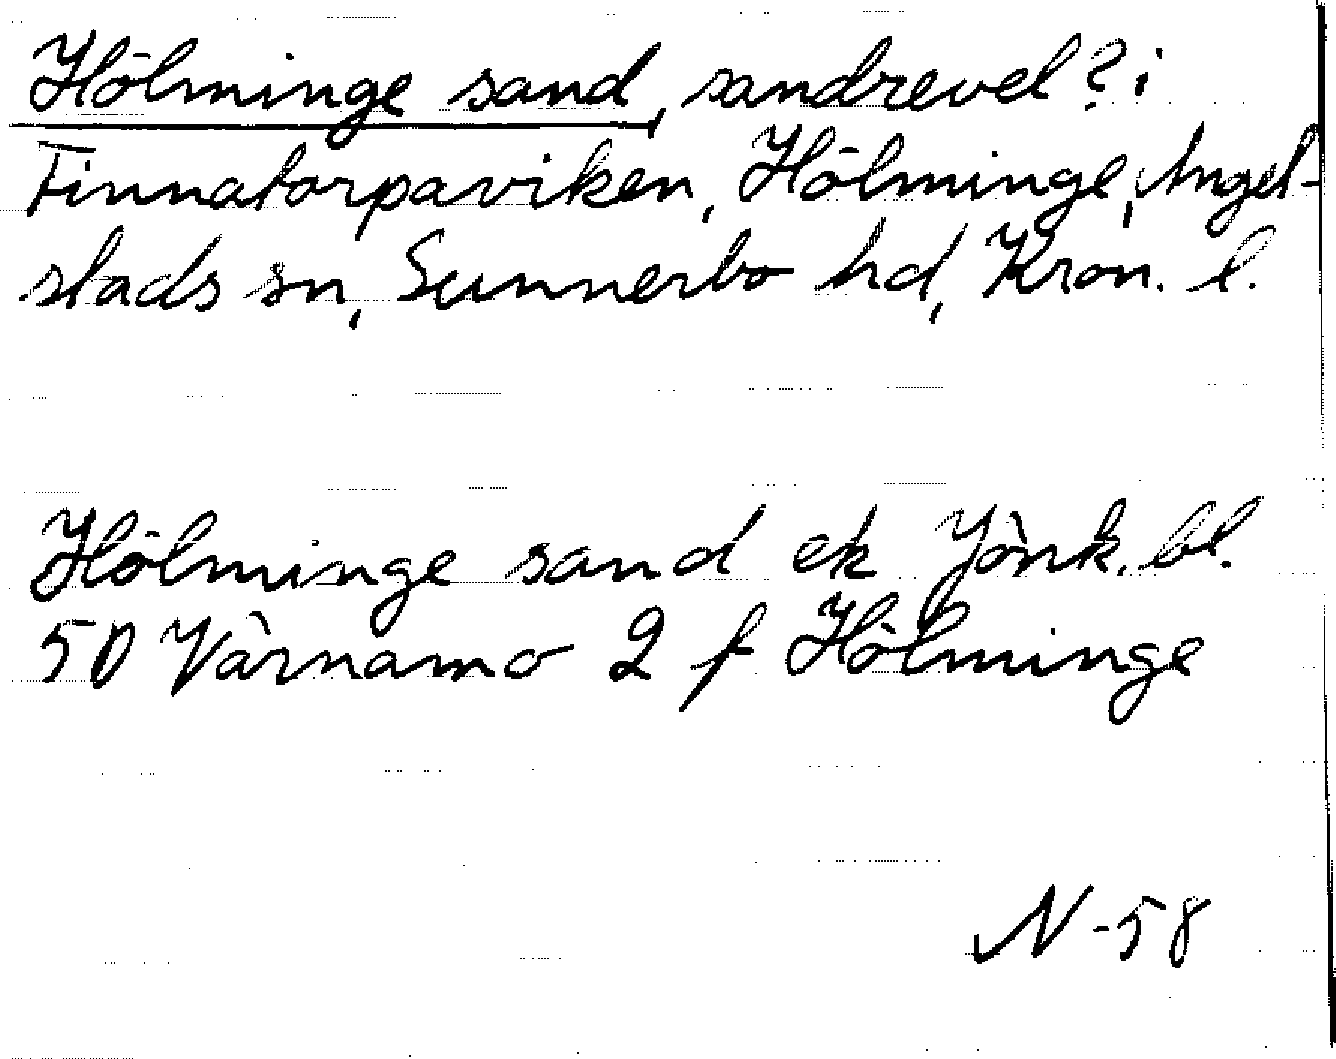 Hölminge sand, sandrevel? i
Finnatorpaviken, Hölminge, Angel-
stads sn, Sunnerbo hd, Kron. l.
Hölminge sand ek Jönk. bl.
50 Värnamo 2 f Hölminge
N-58